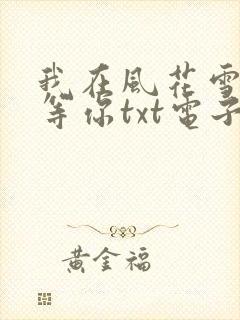 我在風花雪
等你txt電子
黃金福